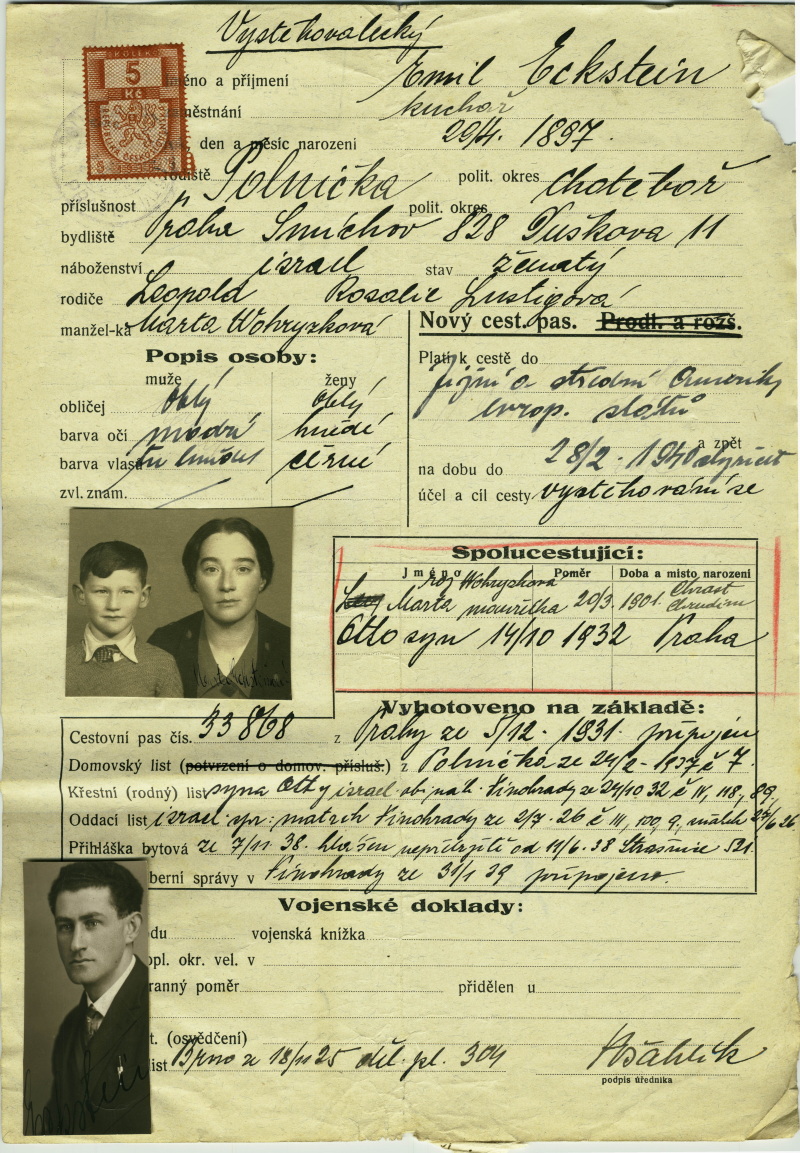 Vystěhovalecký
KOLEK
5
Kč
jméno a příjmení Emil Eckstein
zaměstnání kuchař
den a měsíc narození 29/4. 1897.
rodiště Polnička polit. okres Chotěboř
příslušnost " polit. okres
bydliště Praha Smíchov 828 Duškova 11
náboženství israel stav ženatý
rodiče Leopold Rosalie Lustigová
manžel-ka Marta Wohryzková
Nový cest. pas. Prodl. a rozš.
Popis osoby:
muže ženy
obličej oblý oblý
barva očí modrá hnědé
barva vlasů tm černé
zvl. znam.
Platí k cestě do
Jižní a střední Ameriky
evrop. států
a zpět
na dobu do 28/2. 1940
účel a cíl cesty vystěhování se
Spolucestující:
Jméno Poměr Doba a místo narození
roz Wohryzková Chrast
Marta manželka 20/3. 1901. Chrudim
Otto syn 14/10 1932 Praha
Vyhotoveno na základě:
Cestovní pas čís. 33868 z Prahy ze 5/12. 1931. připojen
Domovský list (potvrzení o domov. přísluš.) z Polnička ze 24/2 - 1937 č 7.
Křestní (rodný) list syna Otty israel ob. nab. Vinohrady ze 24/10 32 č IV, 118, 89,
Oddací list israel spr: matrik Vinohrady ze 2/7. 26 č III, 100, 9, sňatek 27/6 26
Přihláška bytová ze 7/11 38. hlášen nepřetržitě od 11/6. 38 Strašnice 521.
berní správy v Vinohrady ze 31/1 39 připojeno.
Vojenské doklady:
odu vojenská knížka
opl. okr. vel. v
ranný poměr přidělen u
t. (osvědčení)
list Brno ze 18/11 25 děl. pl. 304
podpis úředníka